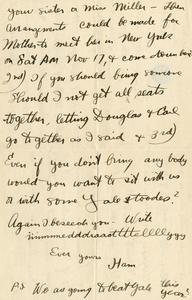 your sister a Miss Miller - then
arrangements could be made for
Mother to meet her in New York
on Sat AM Nov 17, & come down here
2nd) If you should bring someone
should I not get all seats
together, letting Douglas & Carl
go together as I said & 3rd)
Even if you don't bring any body
would you want to sit with us
or with some Yale stoodes?
Again I beseech you - Write
immmedddiaaattttellllyyy
Ever yours
Ham
P.S We are going to beat Yale this
year!